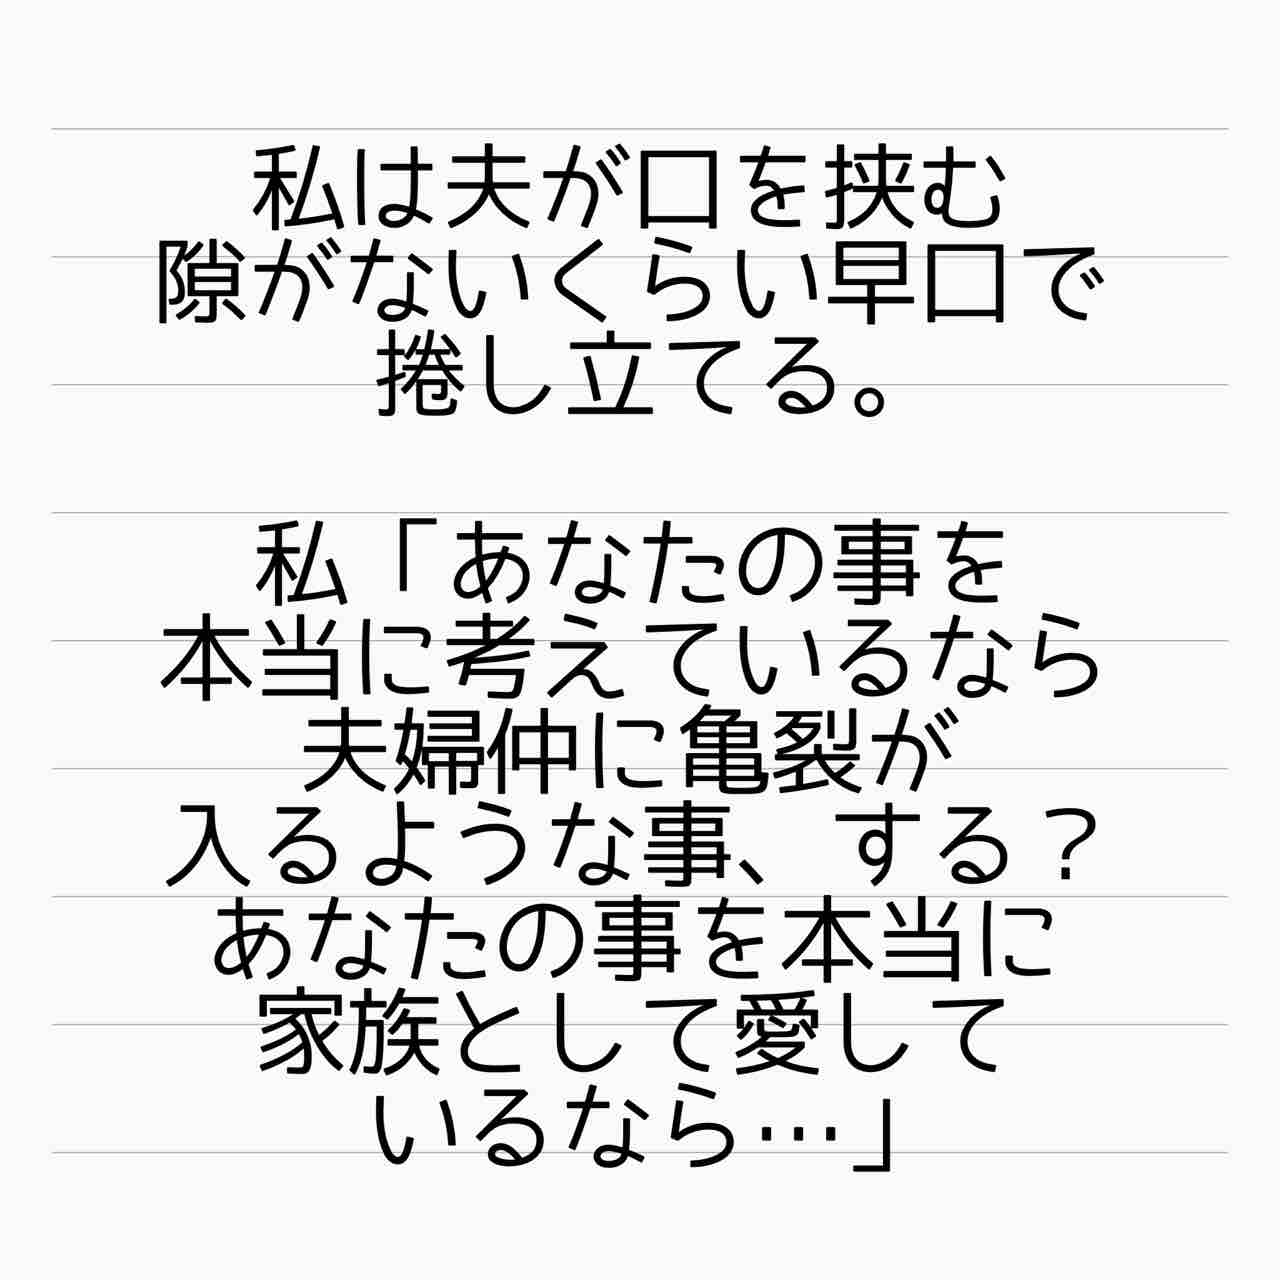 私は夫が口を挟む
隙がないくらい早口で
捲し立てる。
私「あなたの事を
本当に考えているなら
夫婦仲に亀裂が
入るような事、する？
あなたの事を本当に
家族として愛して
いるなら…」